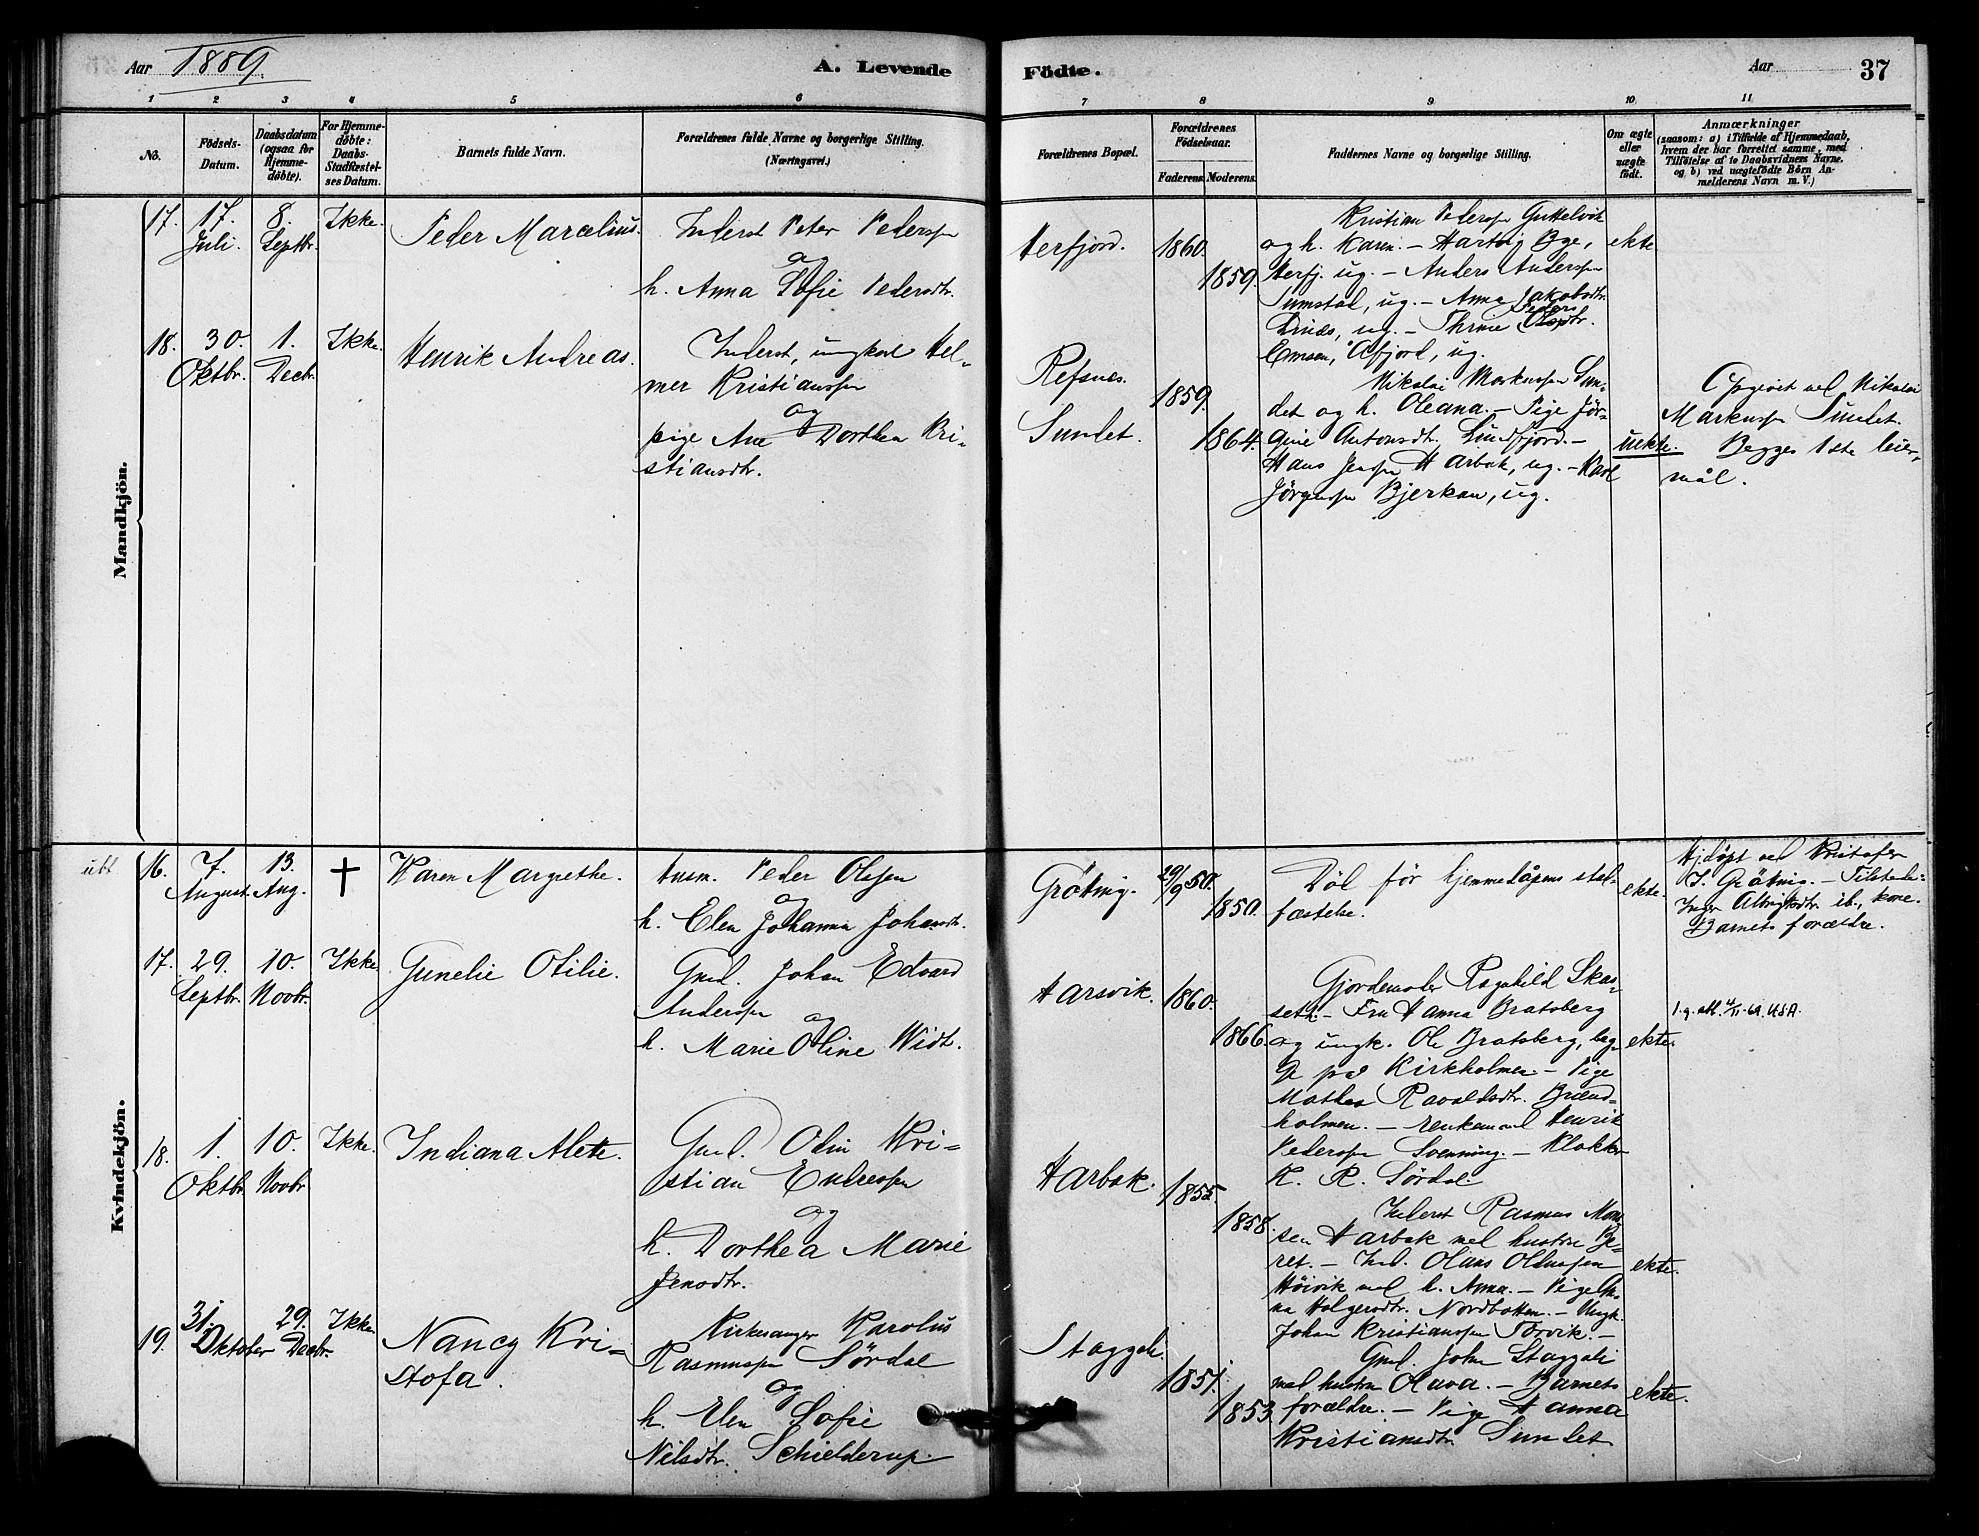 Aar 1889. A. Levende Födte. Aar 37
1 2 3 4 5 6 7 8 9 10 11
No. Födsels-Datum. Daabsdatum (ogsaa for Hjemme-döbte). For Hjemme-döbte: Daabs-Stadfæstel-ses Datum. Barnets fulde Navn. Forældrenes fulde Navne og borgerlige Stilling. (Næringsvei.) Forældrenes Bopæl. Forældrenes Födselsaar. Faderens. Moderens. Faddernes Navne og borgerlige Stilling. Om ægte eller uægte födt. Anmærkninger
(saasom: a) i Tilfælde af Hjemmedaab,
hvem der har forrettet samme, med
Tilföielse af to Daabsvidners Navne.
og b) ved uægtefödte Börn An-
melderens Navn m. V.)
Mandkjön.
17. 17. Juli. 8. Septbr. Ikke. Peder Marcelius.
Inderst Peter Pederssen
og
h. Anna Sofie Pedersdtr.
Herfjord. 1860. 1859.
Kristian Pederssen Guttelvik
og h. Karen. – Hartvig Bye,
Herfj. ug. – Anders Anderssen
Sumstad, ug. – Anna Jakobsdtr.
Peders
Linæs, ug. –
Åfjord, ug.
ekte
18. 30. Oktbr. 1. Decbr. Ikke. Henrik Andreas.
Inderst, ungkarl Hel-
mer Kristianssen
og
pige Ane Dorthea Kri-
stiansdtr.
Refsnes.
Sundet.
1859. 1864.
Nikolai Markussen Sun-
det og h. Oleana. – Pige Jör-
gine Antonsdt. Lundfjord. –
Hans Jenssen Harbak, ug. – Karl
Jörgenssen Bjerkan, ug.
uekte.
Opgivet ved Nikolai
Markussen Sundet.
Begges 1ste leier-
mål.
Kvindekjön.
16. 7. August 13. Aug. † Karen Margrethe.
Husm. Peder Olssen
og
h. Elen Johanna Johansdt.
Gröting. 29/9 50. 1850.
Död för hjemmedåpens stad-
fæstelse.
ekte.
Hjdöpt ved Kristofer
J. Gröting. – Tilstede:
Inger Albrigtsdtr. ib., kone.
Barnets forældre.
17. 29. Septbr. 10. Novbr. Ikke Gunelie Otilie.
Gmd. Johan Edvard
Anderssen
og
h. Marie Oline Widt.
Harsvik. 1860. 1866.
Gjordemoder Ragnhild Skas-
seth – Fru Hanna Bratsberg
og ungk. Ole Bratsberg, beg-
ge på Kirkholmen – Pige
Mathea Ravaldsdtr. Brand-
holmen. – enkemand Henrik
Pederssen Svenning. – Klokker
K. R. Sördal.
ekte.
1.g. att. 4/11-69. USA.
18. 1. Oktbr 10. Novbr Ikke. Indiana Alete.
Gmd. Odin Kri-
stian Endressen
og
h. Dorthea Marie
Jensdtr.
Harbak. 1855. 1858.
Inderst Rasmus Mon-
sen Harbak med hustru Be-
ret. – Ind. Olaus Oldussen
Höivik med h. Anna. – Pige
Holgersdtr. Nordbotten. – Ungk.
Johan Kristianssen Törvik. –
ekte.
19. 31. Oktober 29. Decbr. Ikke. Nancy Kri-
stofa.
Kirkesanger Karolus
Rasmussen Sördal
og
h. Elen Sofie
Nilsdtr. Schielderup.
Staggeli. 1851. 1853.
Gmd. John Staggeli
med hustru Olava. – Barnets
forældre. – Pige Hanna
Kristiansdtr Sundet
ekte.